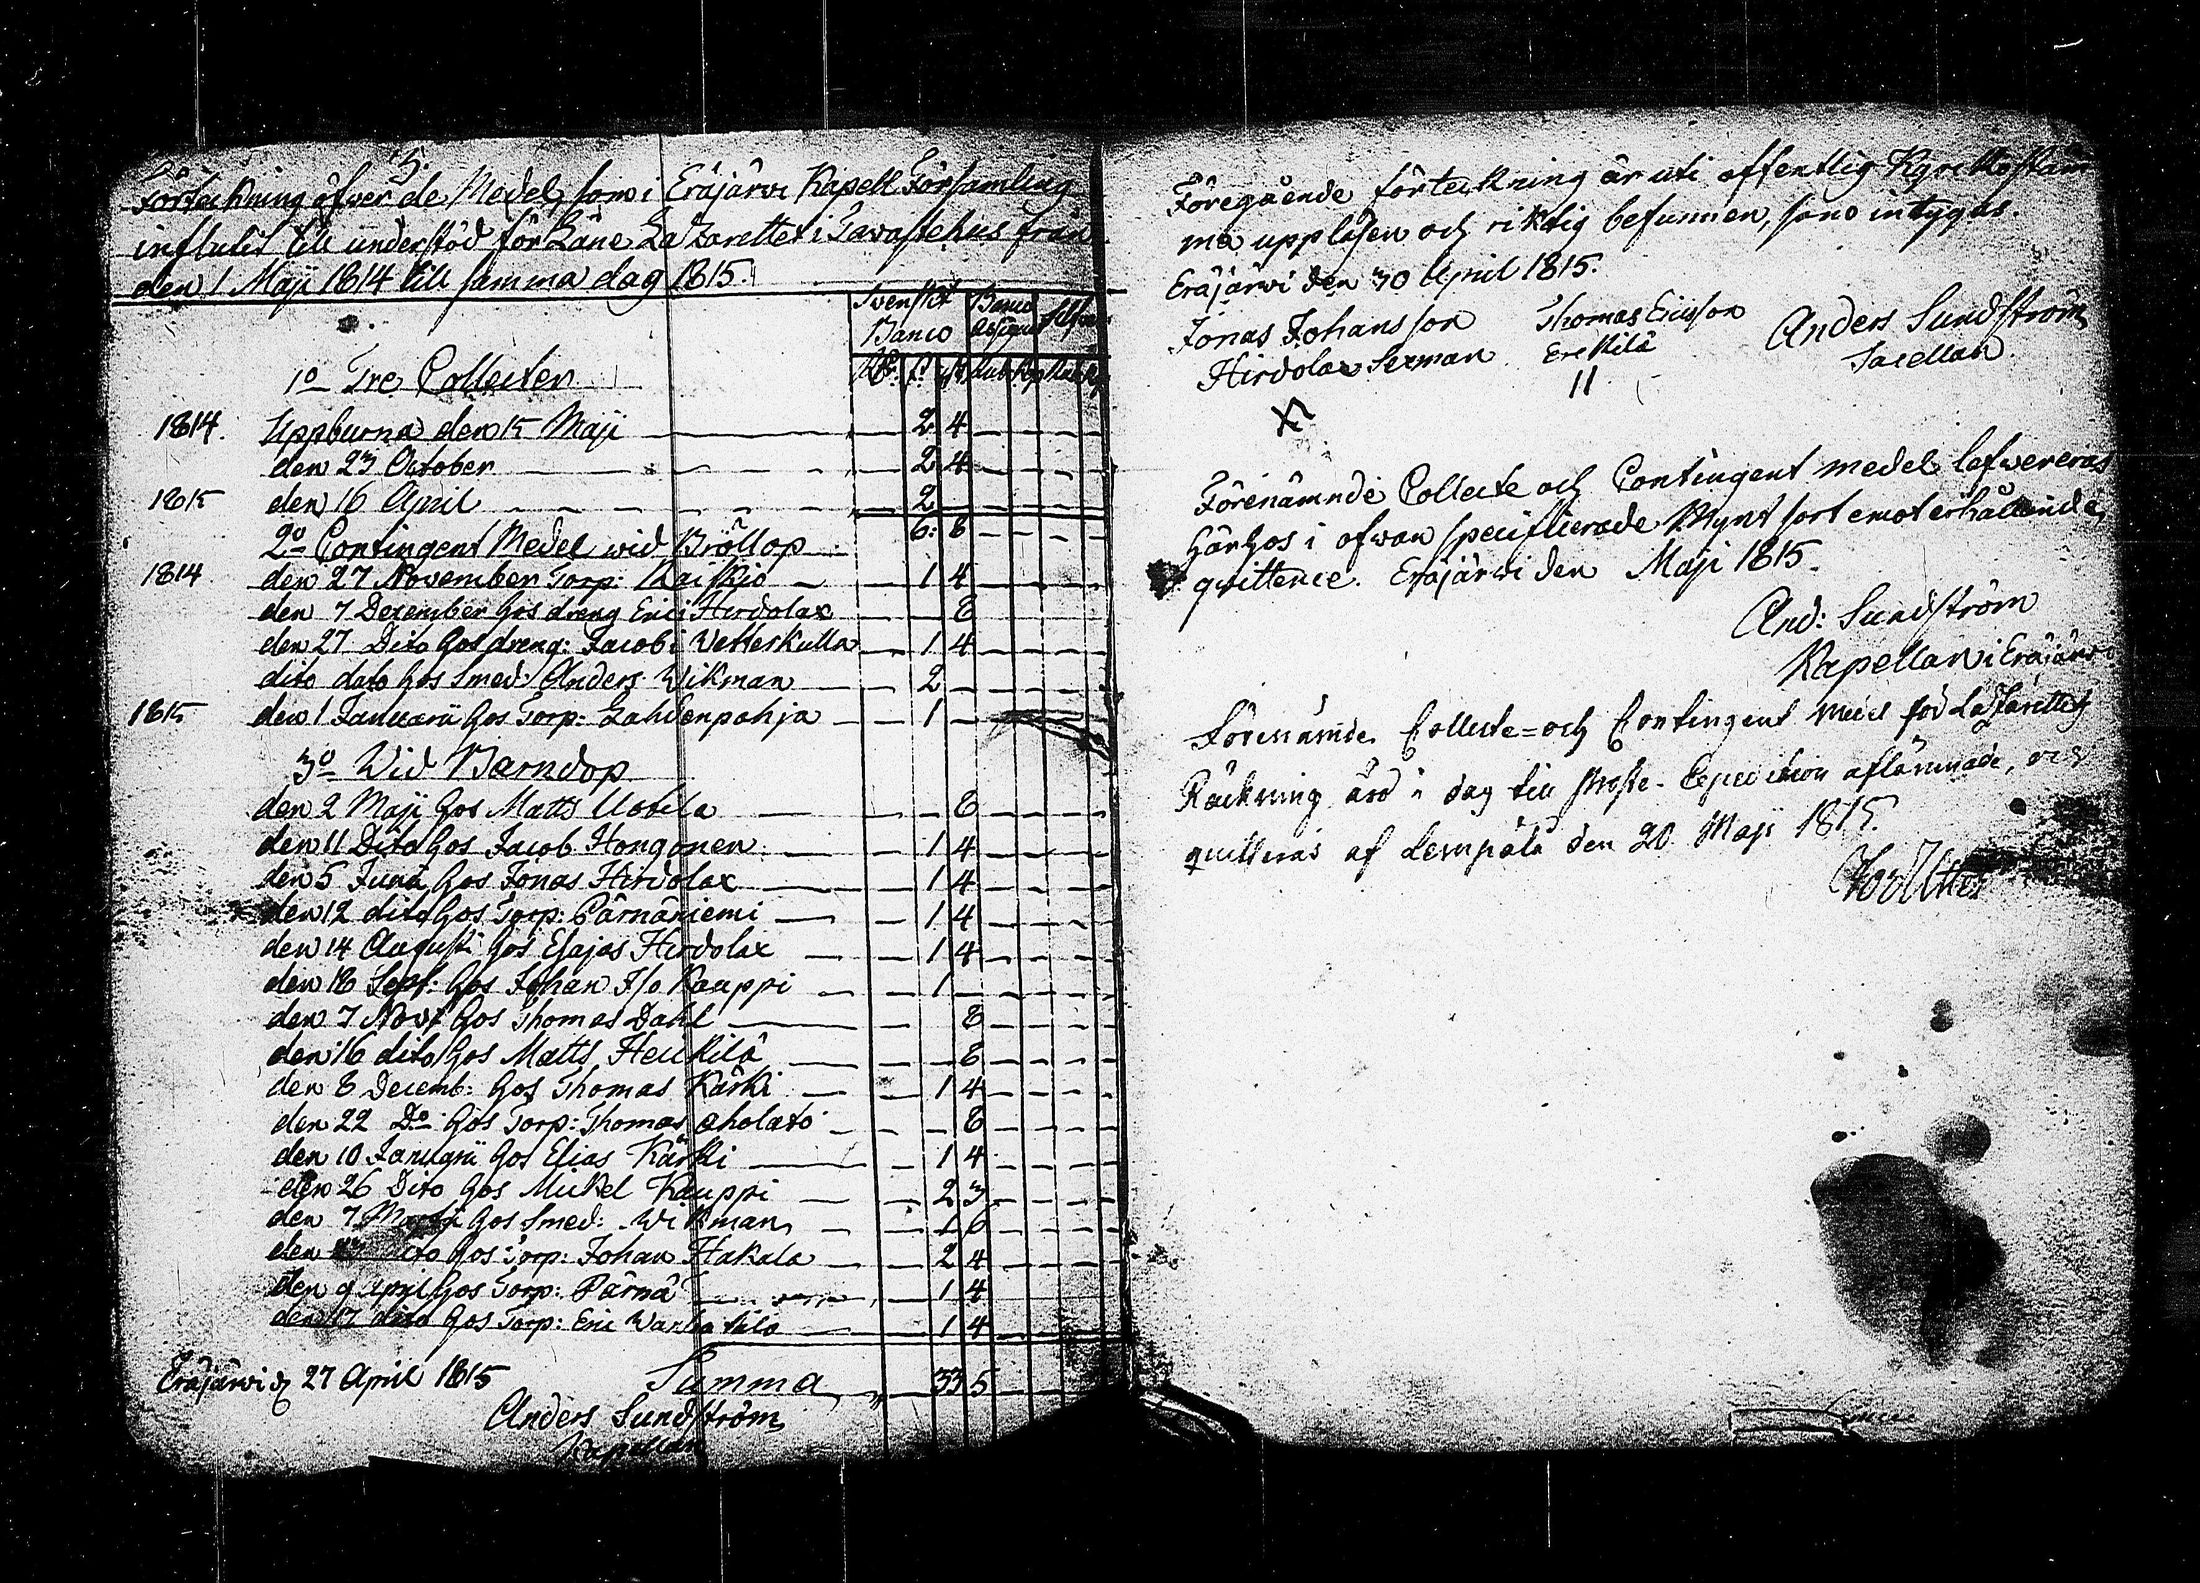 5.
Förteckning öfwer de Medel, som i Eräjärwi Kapell Församling
influtit till understöd för Läne Lazarettet i Tavastehus från
den 1 Maji 1814 till samma dag 1815.
Svenskt Banco Banco Assign: Silfwer
Rd. ß. rst. Rub Kop Rub Kop
1o Tre Collecter
1814. Uppburna den 15 Maji 2 4
den 23 October 2 4
1815 den 16 April 2
6: 8
2o Contingent Medel wid Bröllop
1814 den 27 November Torp: Raiskio 1 4
den 7 December hos dreng Eric i Hirdolax 8
den 27 Dito hos dreng: Jacob i Wetteskulla 1 4
dito dato hos Smed: Anders Wikman 2
1815 den 1 Januarii hos Torp: Lahdenpohja 1
3o Wid Barndop
den 2 Maji hos Matts Uotila 8
den 11 Dito hos Jacob Hongonen 1 4
den 5 Junii hos Jonas Hirdolax 1 4
den 12 dito hos Torp: Pärnäniemi 1 4
den 14 Augusti hos Esajas Hirdolax 1 4
den 18 Sept: hos Johan J/o Kauppi 1
den 7 Novt hos Thomas Dahl 8
den 16 dito hos Matts Heikkilä 8
den 8 Decemb: hos Thomas Kärki 1 4
den 22 Do hos Torp: Thomas Aholato 8
den 10 Januarii hos Elias Kärki 1 4
den 26 Dito hos Mickel Kauppi 2 3
den 7 Martii hos Smed: Wikman 1 6
den dito hos Torp: Johan Hakala 2 4
den 9 April hos Torp: Pärnä 1 4
den 17 dito hos Torp: Eric 1 4
Eräjärwi d 27 April 1815 Summa 33 5
Anders Sundström
Kapellan
Föregående förteckning är uti offentlig Kyrkostäm
ma uppläsen och riktig befunnen, som intygas.
Eräjärwi den 30 April 1815.
Jonas Johansson Thomas Ericsson Anders Sundström
Hirdolax Sexman Erekilä Sacellan
Förenämnde Collecte och Contingent medel lefwereras
härhos i ofwan specificerade Mynt sort emot erhållande
quittence. Eräjärwi den Maji 1815.
And: Sundström
Kapellan i Eräjärwi
Förenämde Collecte= och Contingent medel för Lazarettets
Räckning äro i dag till Probste-Expedition aflämnade, och
quitteras af Lempälä den 20 Maji 1815.